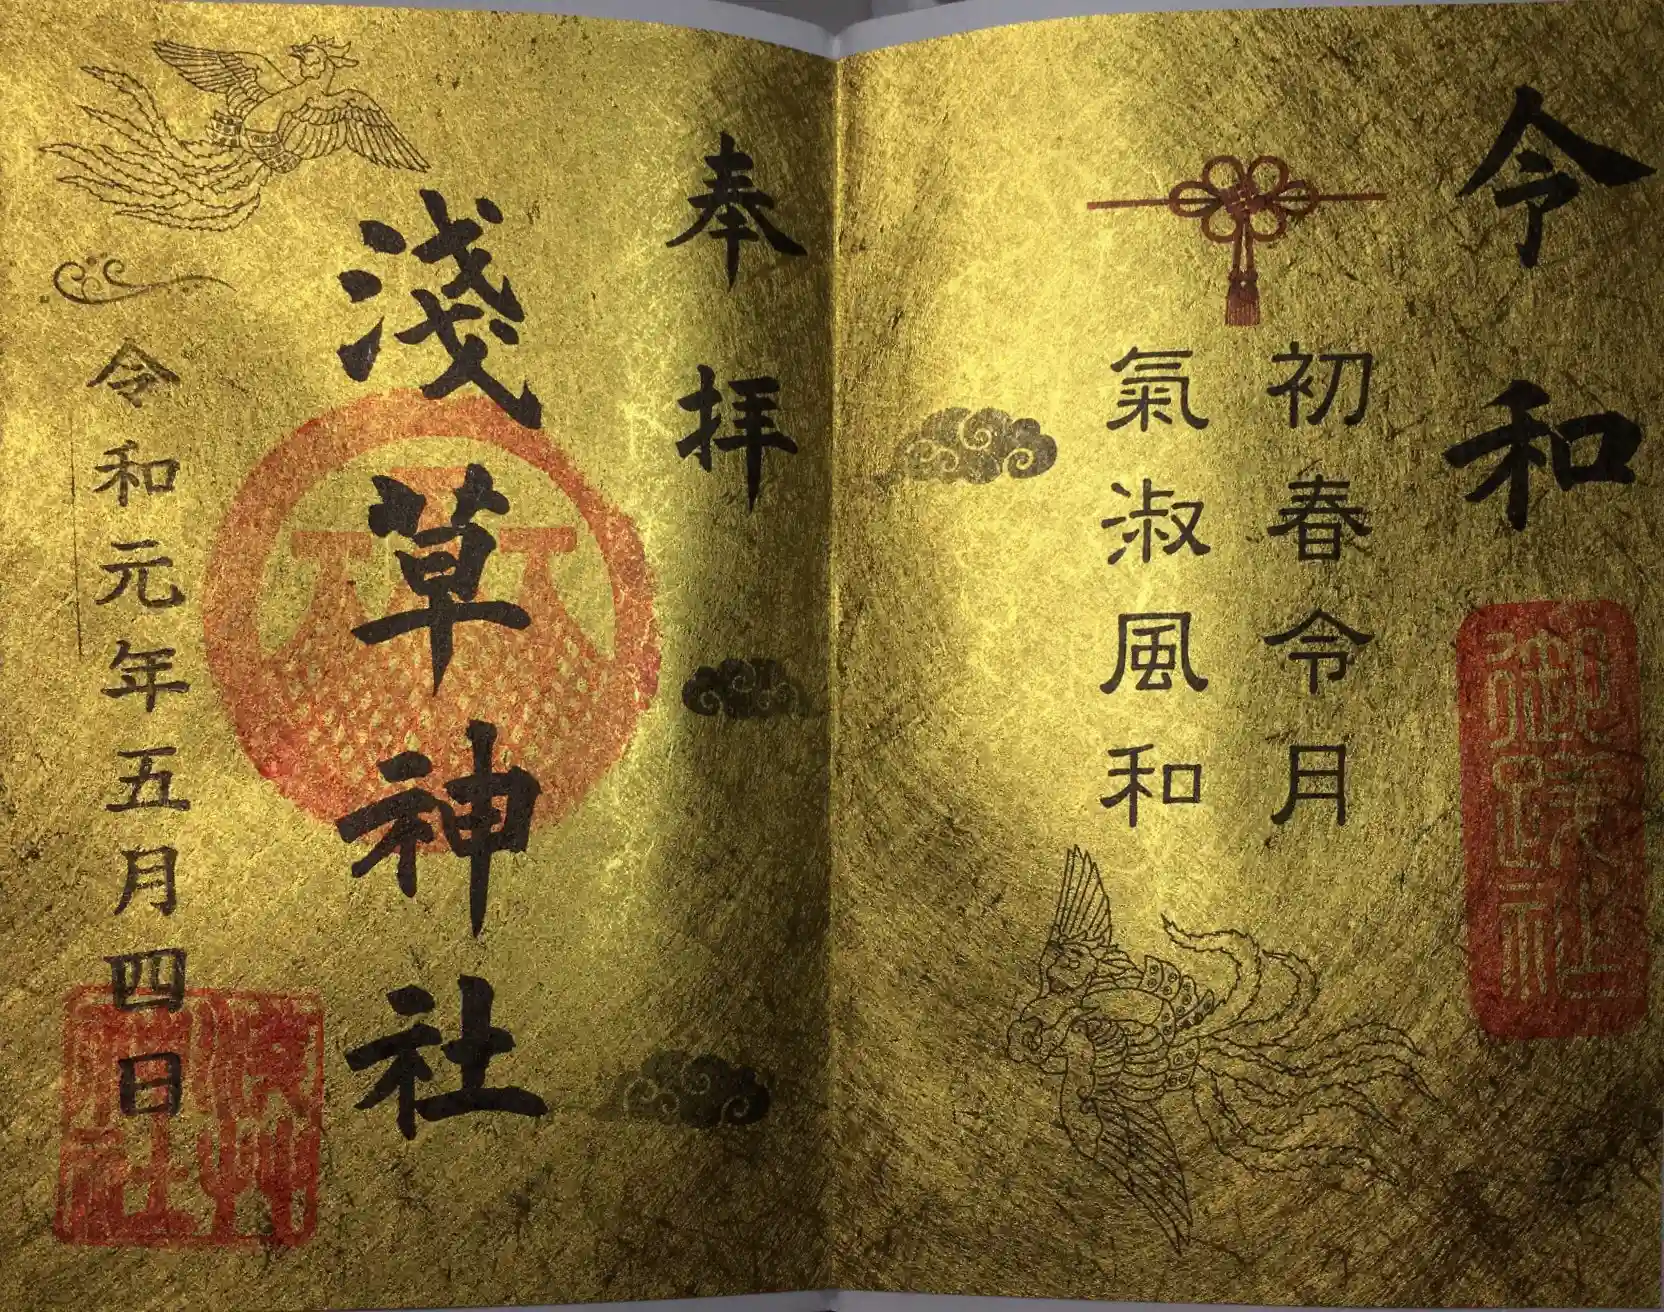 令和
初春令月
氣淑風和
奉拝
淺草神社
令和元年五月四日
淺艸
神社